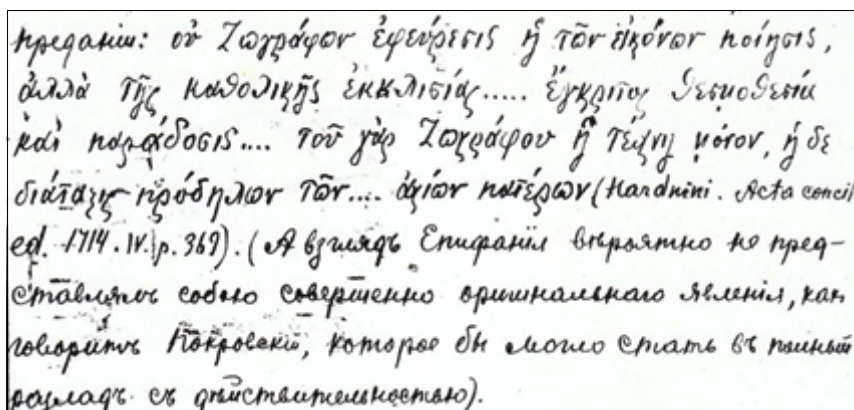 преданіи: οὐ Ζωγράφων ἐφεύρεσις ἡ τῶν εἰκόνων ποίησις,
ἀλλὰ τῆς καθολικῆς ἐκκλισίας..... ἔγκριτος θεσμοθεσία
καὶ παράδοσις.... τοῦ γὰρ Ζωγράφου ἡ τέχνη μόνον, ἡ δε
διάταξις πρόδηλον τῶν.... ἁγίων πατέρων (Hardnini. Acta concil
ed. 1714. IV. p. 369). (А взглядъ Епифанія вѣроятно не пред-
ставляетъ собою совершенно оригинальнаго явленія, как
говоритъ Покровскій, которое бы могло стать въ полный
разладъ съ дѣйствительностью).